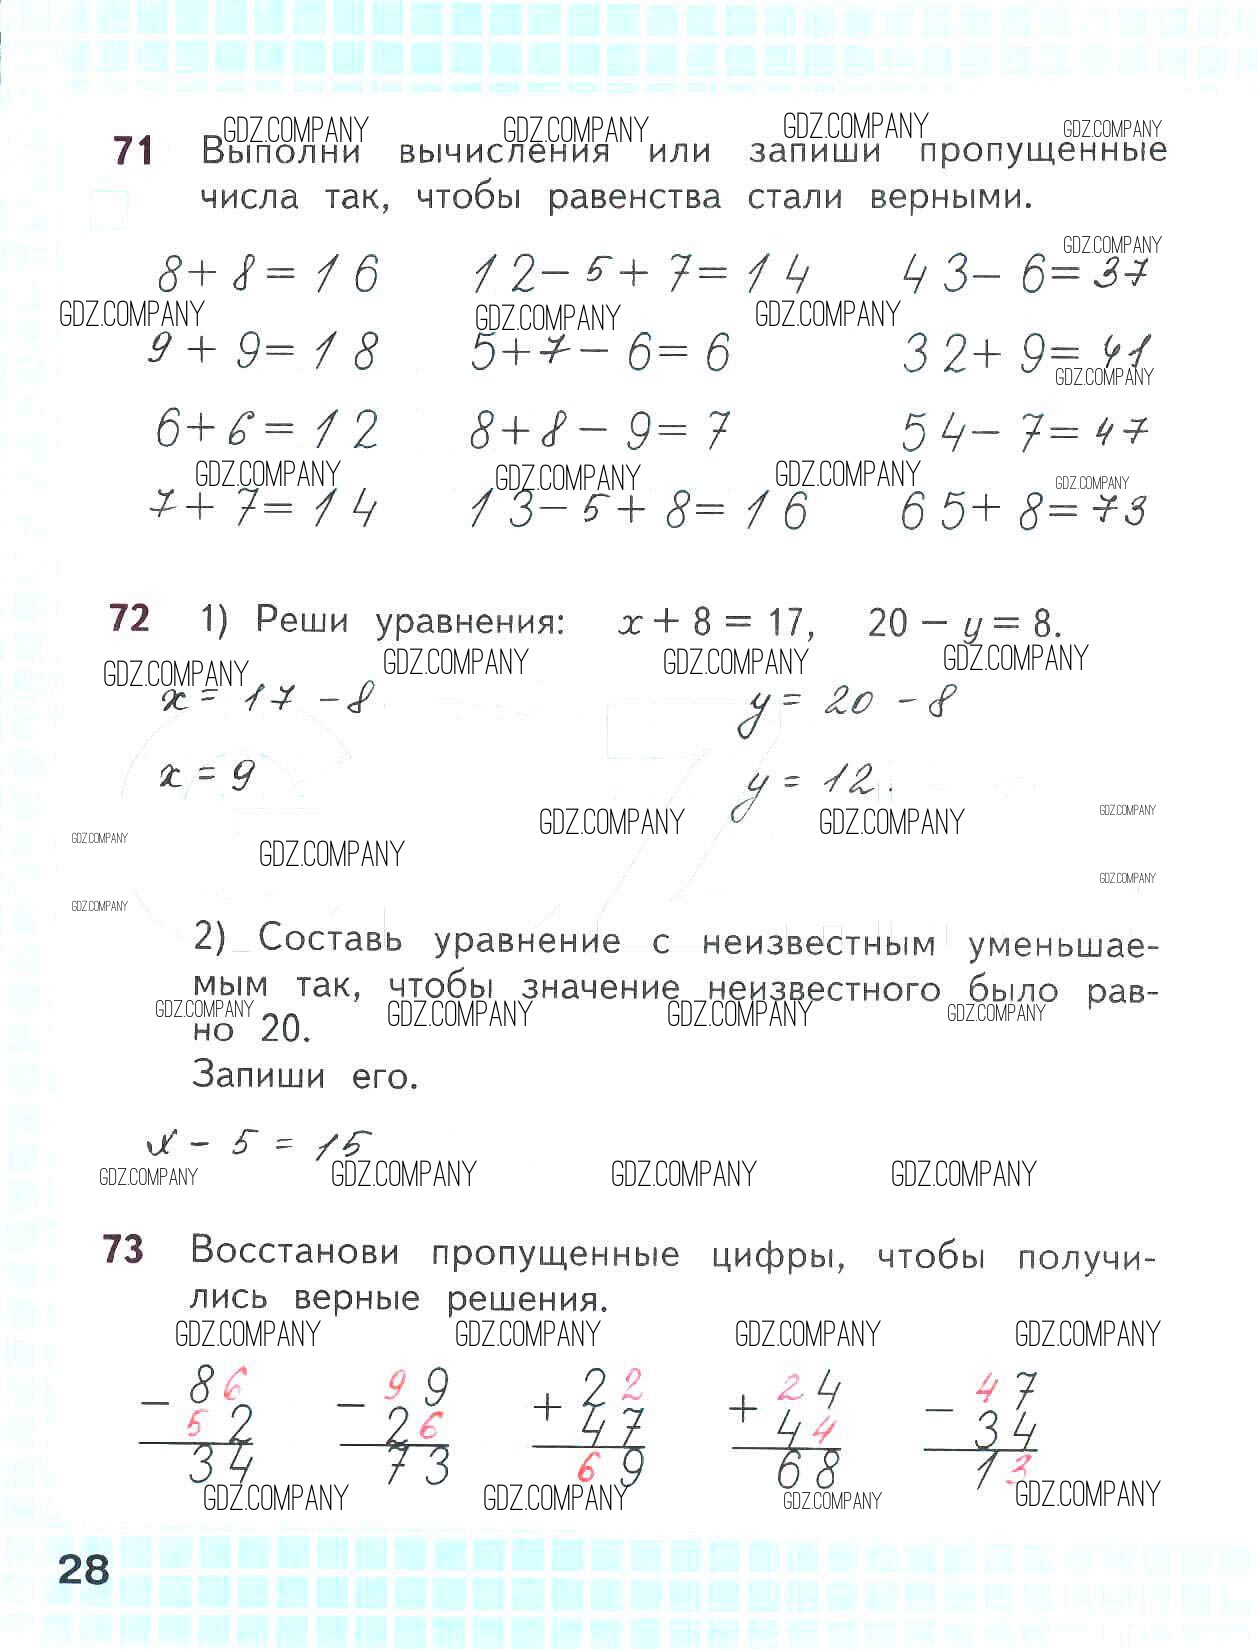 GDZ.COMPANY GDZ.COMPANY GDZ.COMPANY GDZ.COMPANY
71 Выполни вычисления или запиши пропущенные
числа так, чтобы равенства стали верными.
GDZ.COMPANY
8+8=16 12-5+7=14 43-6=37
GDZ.COMPANY GDZ.COMPANY GDZ.COMPANY
9+9=18 5+7-6=6 32+9=41
GDZ.COMPANY
6+6=12 8+8-9=7 54-7=47
GDZ.COMPANY GDZ.COMPANY GDZ.COMPANY GDZ.COMPANY
7+7=14 13-5+8=16 65+8=73
72 1) Реши уравнения: x + 8 = 17, 20 − y = 8.
GDZ.COMPANY GDZ.COMPANY GDZ.COMPANY GDZ.COMPANY
x = 17 - 8 y = 20 - 8
x = 9 y = 12.
GDZ.COMPANY GDZ.COMPANY GDZ.COMPANY
GDZ.COMPANY GDZ.COMPANY
GDZ.COMPANY
GDZ.COMPANY
2) Составь уравнение с неизвестным уменьшае-
мым так, чтобы значение неизвестного было рав-
GDZ.COMPANY GDZ.COMPANY GDZ.COMPANY GDZ.COMPANY
но 20.
Запиши его.
x - 5 = 15
GDZ.COMPANY GDZ.COMPANY GDZ.COMPANY GDZ.COMPANY
73 Восстанови пропущенные цифры, чтобы получи-
лись верные решения.
GDZ.COMPANY GDZ.COMPANY GDZ.COMPANY GDZ.COMPANY
− 86 − 99 + 22 + 24 − 47
52 26 47 44 34
34 73 69 68 13
GDZ.COMPANY GDZ.COMPANY GDZ.COMPANY GDZ.COMPANY
28